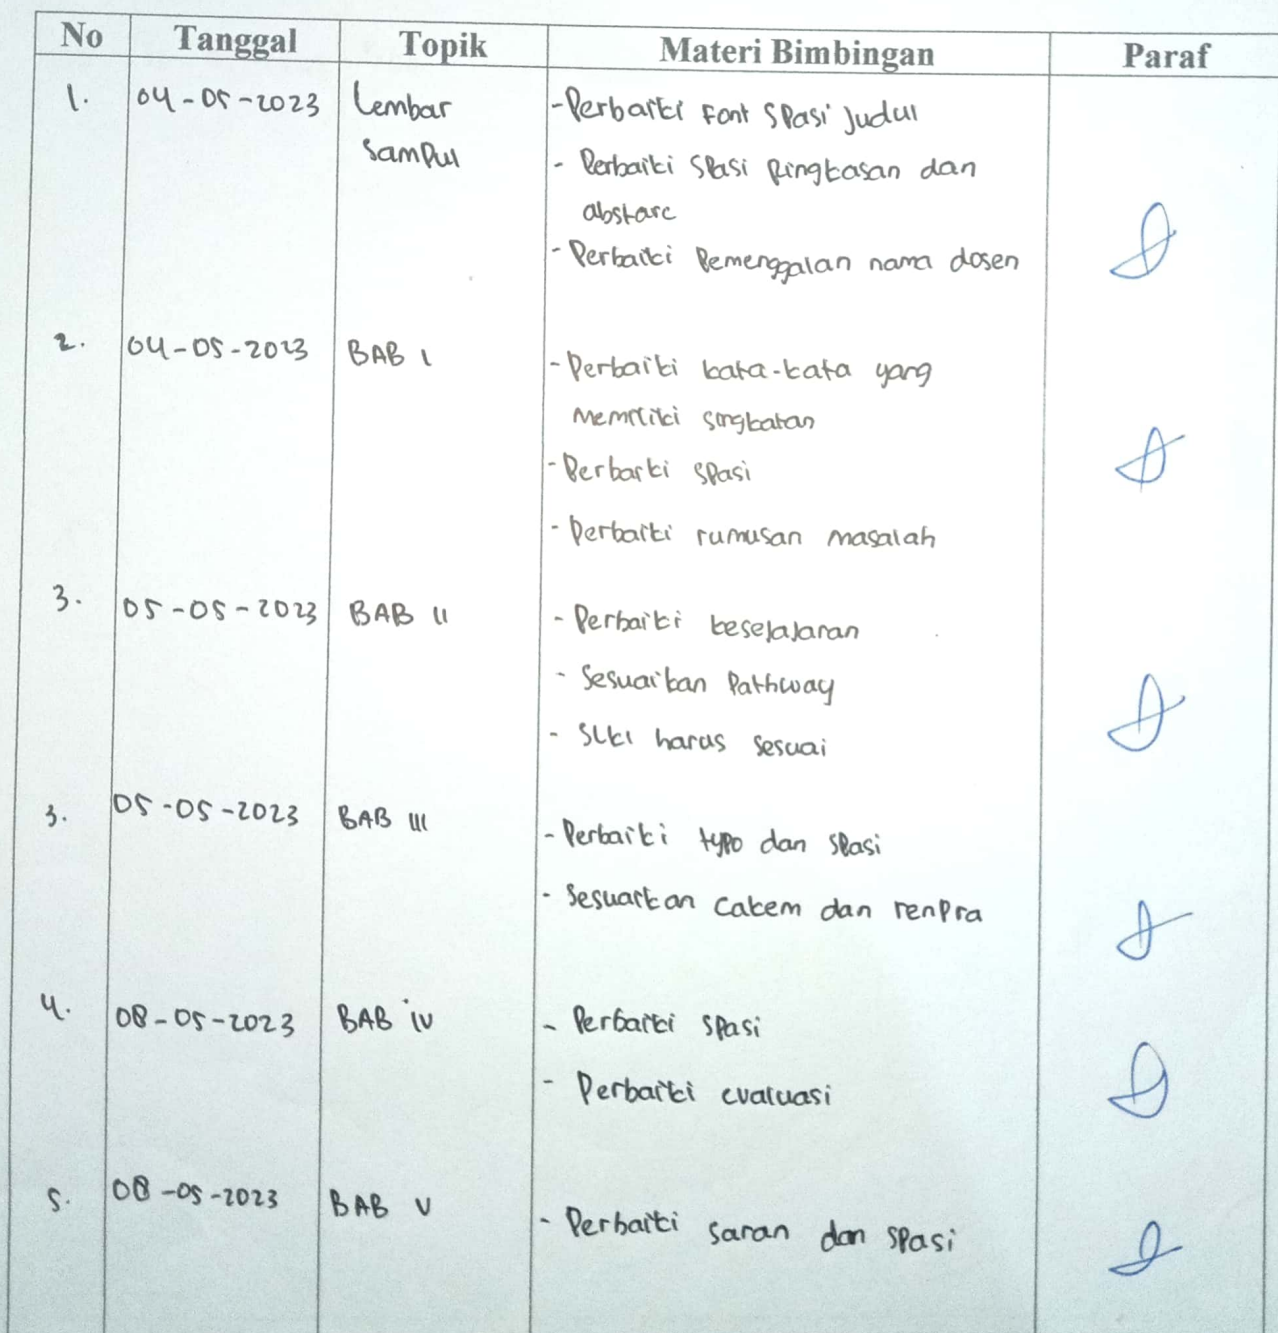 No Tanggal Topik Materi Bimbingan Paraf
1. 04-05-2023 Lembar -Perbaiki Font Spasi Judul
Sampul - Perbaiki Spasi Ringkasan dan
abstarc
- Perbaiki Pemenggalan nama dosen
2. 04-05-2023 BAB I - Perbaiki kata-kata yang
Memiliki singkatan
- Perbaiki spasi
- Perbaiki rumusan masalah
3. 05-05-2023 BAB II - Perbaiki keselajaran
- Sesuaikan Pathway
- SLKI harus sesuai
3. 05-05-2023 BAB III - Perbaiki typo dan spasi
- Sesuaikan cakem dan renpra
4. 08-05-2023 BAB iv - Perbaiki spasi
- Perbaiki evaluasi
5. 08-05-2023 BAB V - Perbaiki saran dan spasi